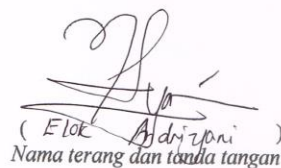 ( Elok Andriyani )
Nama terang dan tanda tangan